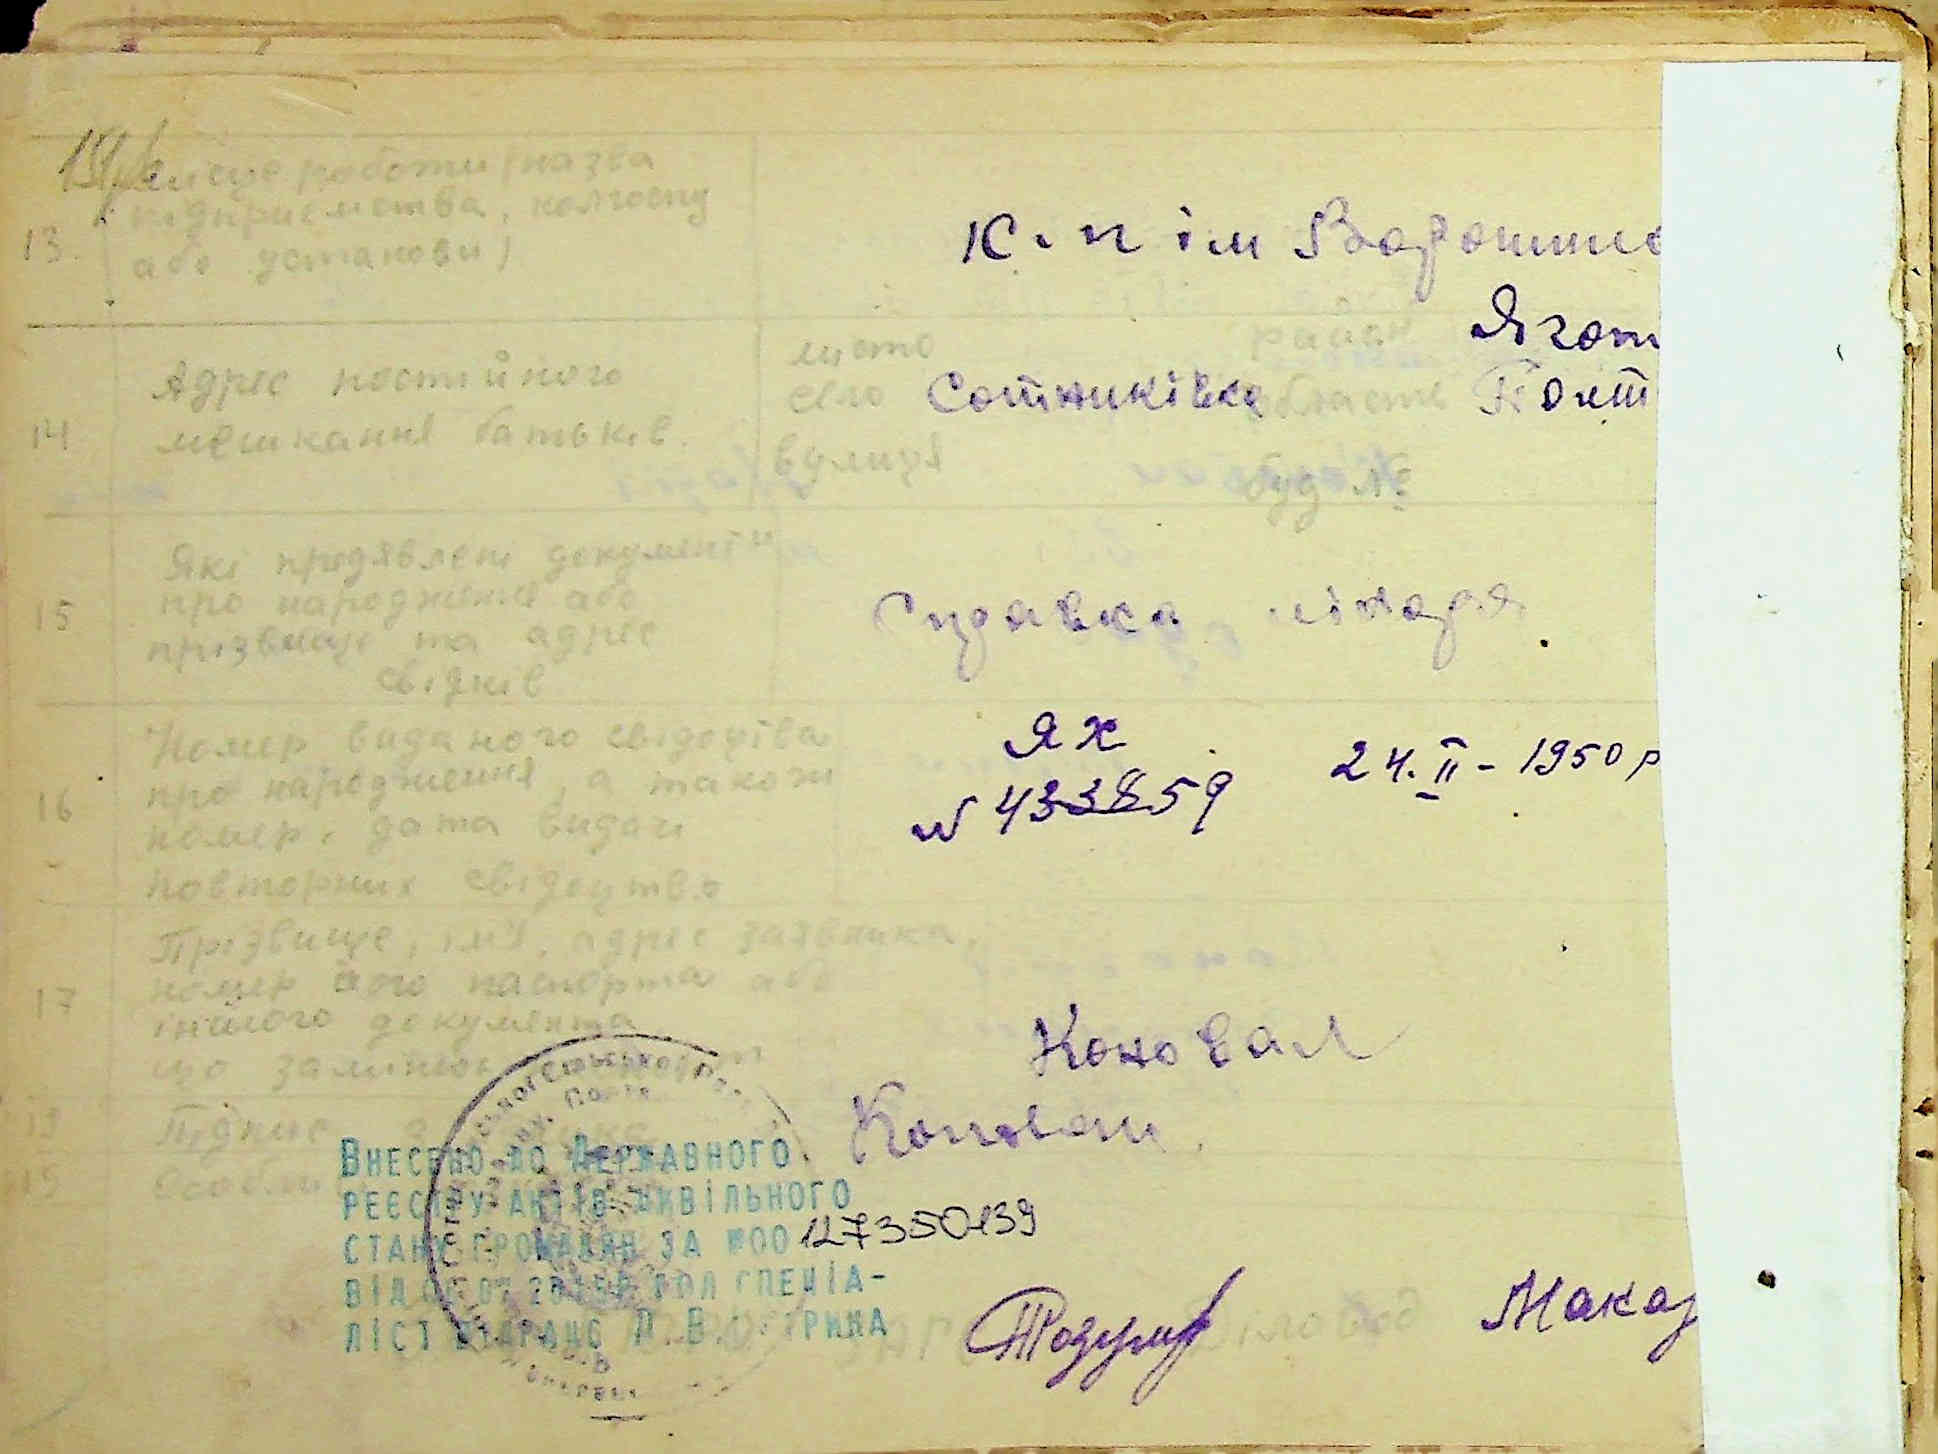 13. місце роботи (назва
підприємства, колгоспу
або установи)
к-п ім Ворошило
14 Адрес постійного
мешкання батьків.
місто район Ягот
село Сотниківка область Полт
вулиця буд №
15 Які предявлені документи
про народження або
прізвище та адрес
свідків
Справка лікаря.
16 Номер виданого свідоцтва
про народження, а також
номер, дата видачі
повторних свідоцтв
ЯЖ
№ 433859 24.II-1950р
17 Прізвище, ім'я, адрес заявника,
номер його паспорта або
іншого документа
що замінює
Коновал
Підпис
Коновал
Внесено до Державного
реєстру актів цивільного
стану громадян за №00127350139
спеціа-
ліст
Макар